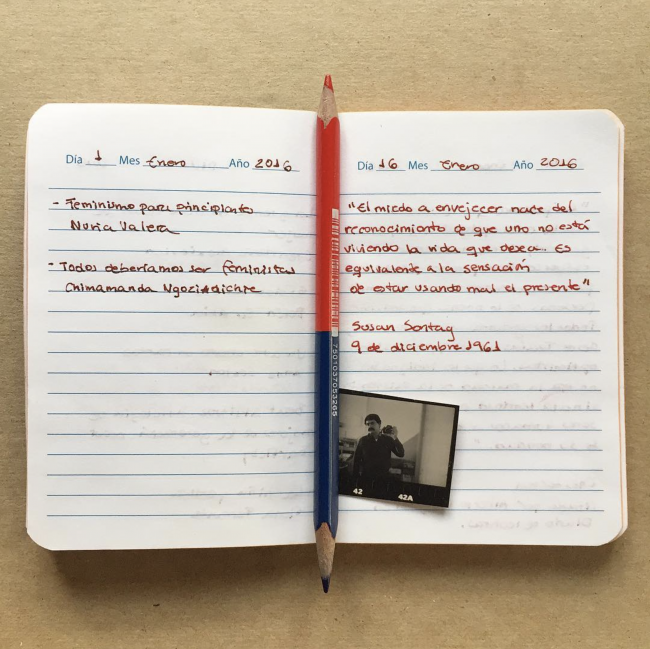 Día 1 Mes Enero Año 2016
- Feminismo para principiantes
Nuria Valera
- Todos deberíamos ser feministas
Chimamanda Ngozi Adichie
7501037053265
Día 16 Mes Enero Año 2016
"El miedo a envejecer nace del
reconocimiento de que uno no está
viviendo la vida que desea. Es
equivalente a la sensación
de estar usando mal el presente"
Susan Sontag
9 de diciembre 1961
42 42A